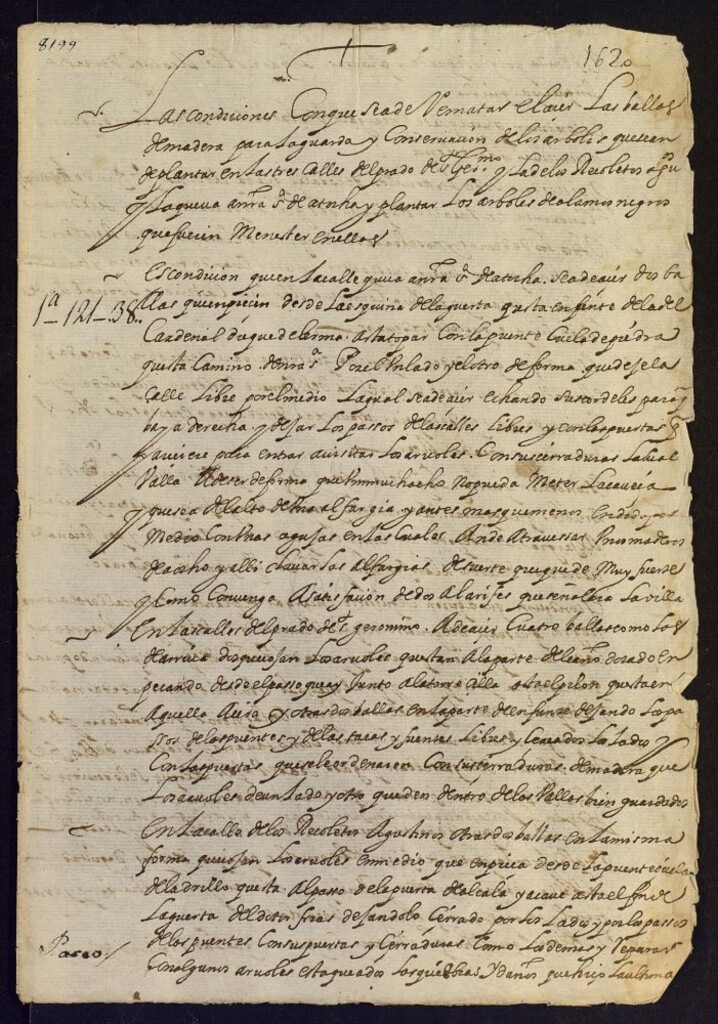 8199
1620
Las condiciones Conque seade Rematar el acer Las ballas
demadera para laguarda y Conservacion delos arboles que sean
deplantar en las tres Calles del prado de st Germo y La delos Recoletos
y La que va a nra sa de atocha y plantar Los arboles de alamos negros
que fueren Menester en ellas
Es condicion que en la calle que va a nra sa de atocha. seade acer dos ba
1a 121-38
llas que enpiecen desde La esquina dela guerta questa enfrente de la del
Cardenal duque de lerma. asta topar Con la puente cuela de piedra
questa Camino Por el un lado y el otro de forma que deje la
Calle Libre por el medio La qual seade acer echando sus cordeles para q
baya derecha y dejar Los passos delas calles Libres y con las puertas q
para entrar a visitar Los arvoles. Con sus cerraduras La qual
Valla A de ser de forma que un muchacho no pueda Meter La caveça
que sea del alto de una alfargia y antes mas que menos
Medio Con unas agujas en las Cuales Ande Atravessar Unos maderos
de a ocho y alli Clavar las alfargias de suerte que quede Muy fuerte
y Como Convenga A satisfacion de dos Alarifes que señalara La villa
En Las calles del prado de st geronimo. Ade acer Cuatro ballas como Las
de arriva dos que cojan Los arvoles questan A la parte
peçando desde el passo que ay Junto a la torrecilla asta el pilon questa en
Aquella Acera y otras dos ballas en la parte de enfrente dejando Los pa
ssos delas puentes y delas tacas y fuentes Libres y Cerrados Los Lados
Con las puertas que se le ordenaren Con sus cerraduras. de manera que
Los arvoles de un Lado y otro queden dentro de las Vallas bien guardados
En La calle delos Recoletos Agustinos otras dos ballas en La misma
forma que cojan Los arvoles en medio que enpieça desde La puente cuela
de ladrillo questa Al passo de la puerta de alcala y acave asta el fin de
La guerta del dotor frias dejandolo Cerrado por los Lados y por los passos
delas puentes Con sus puertas y Cerraduras Como Las demas y Reparar
En algunos arvoles estaqueados Las quiebras y daños que hiço La ultima